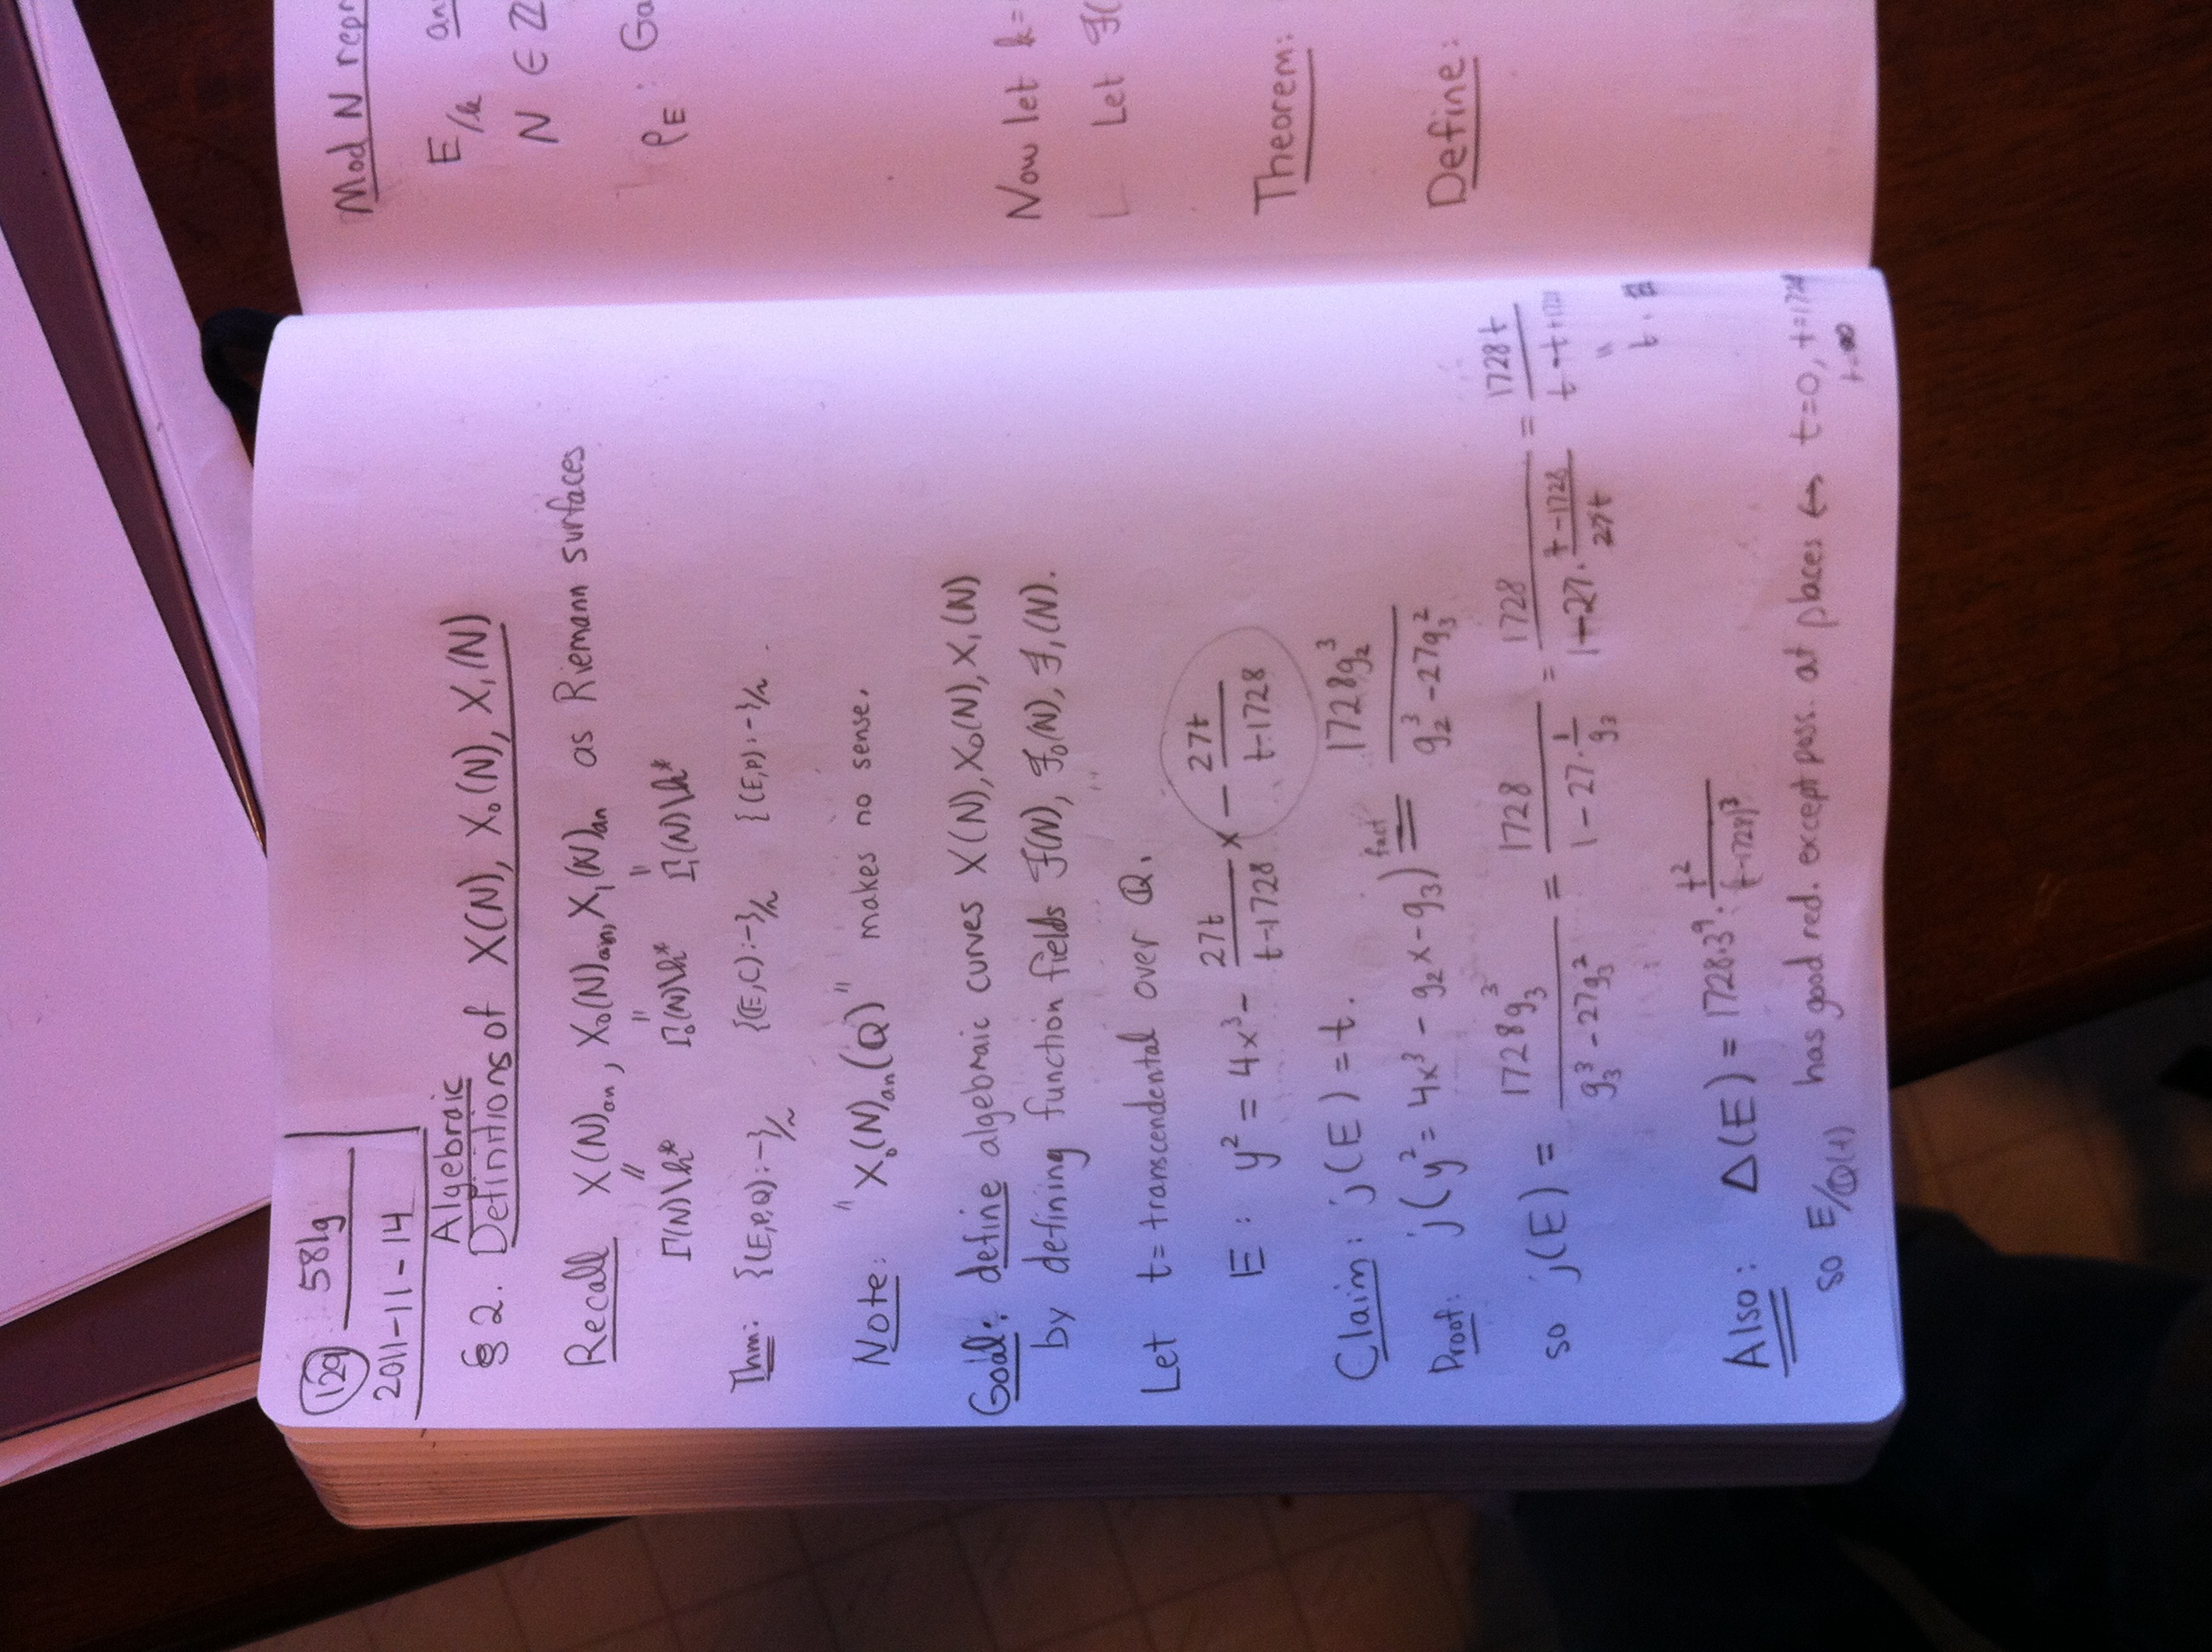 129 581g
2011-11-14
Algebraic
§2. Definitions of X(N), X₀(N), X₁(N)
Recall X(N)an, X₀(N)an, X₁(N)an as Riemann surfaces
" " "
Γ(N)\h* Γ₀(N)\h* Γ₁(N)\h*
Thm: {(E,P,Q):-}/~ {(E,C):-}/~ {(E,P):-}/~.
Note: "X₀(N)an(Q)" makes no sense.
Goal: define algebraic curves X(N), X₀(N), X₁(N)
by defining function fields F(N), F₀(N), F₁(N).
Let t = transcendental over Q.
E: y² = 4x³ - 27t/(t-1728) x - 27t/(t-1728)
Claim: j(E) = t.
Proof: j(y² = 4x³ - g₂x - g₃) fact = 1728g₂³/(g₂³ - 27g₃²)
so j(E) = 1728g₃³/(g₃³ - 27g₃²) = 1728/(1 - 27·1/g₃) = 1728/(1-27·(t-1728)/27t) = 1728t/(t-t+1728)
"
t.
Also: Δ(E) = 1728·3⁹·t²/(t-1728)³
so E/Q(t) has good red. except poss. at places ↔ t=0, t=1728
t=∞
Mod N repr
E/k an
N ∈ Z
ρE: Ga
Now let k=
Let F(
Theorem:
Define: